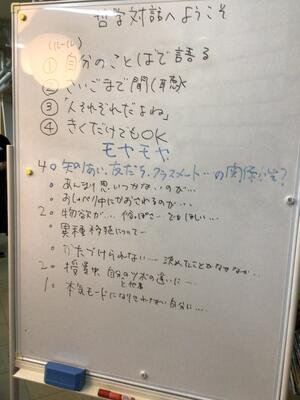 哲学対話へようこそ
(ルール)
① 自分のことばで語る
② さいごまで聞く(聴
③ 「人それぞれだよね」
④ きくだけでもOK
モヤモヤ
4 ○ 知りあい、友だち、クラスメート…の関係って?
○ あんまり思いつかないのが…
○ おしゃべり中に
2 ○ 物欲が…
○ 異種移植について
○ かたづけられない…… 決めたことが
2 ○ 授業中 自分のツボの違いに…
と他者
1 ○ 本気モードになりきれない自分に……